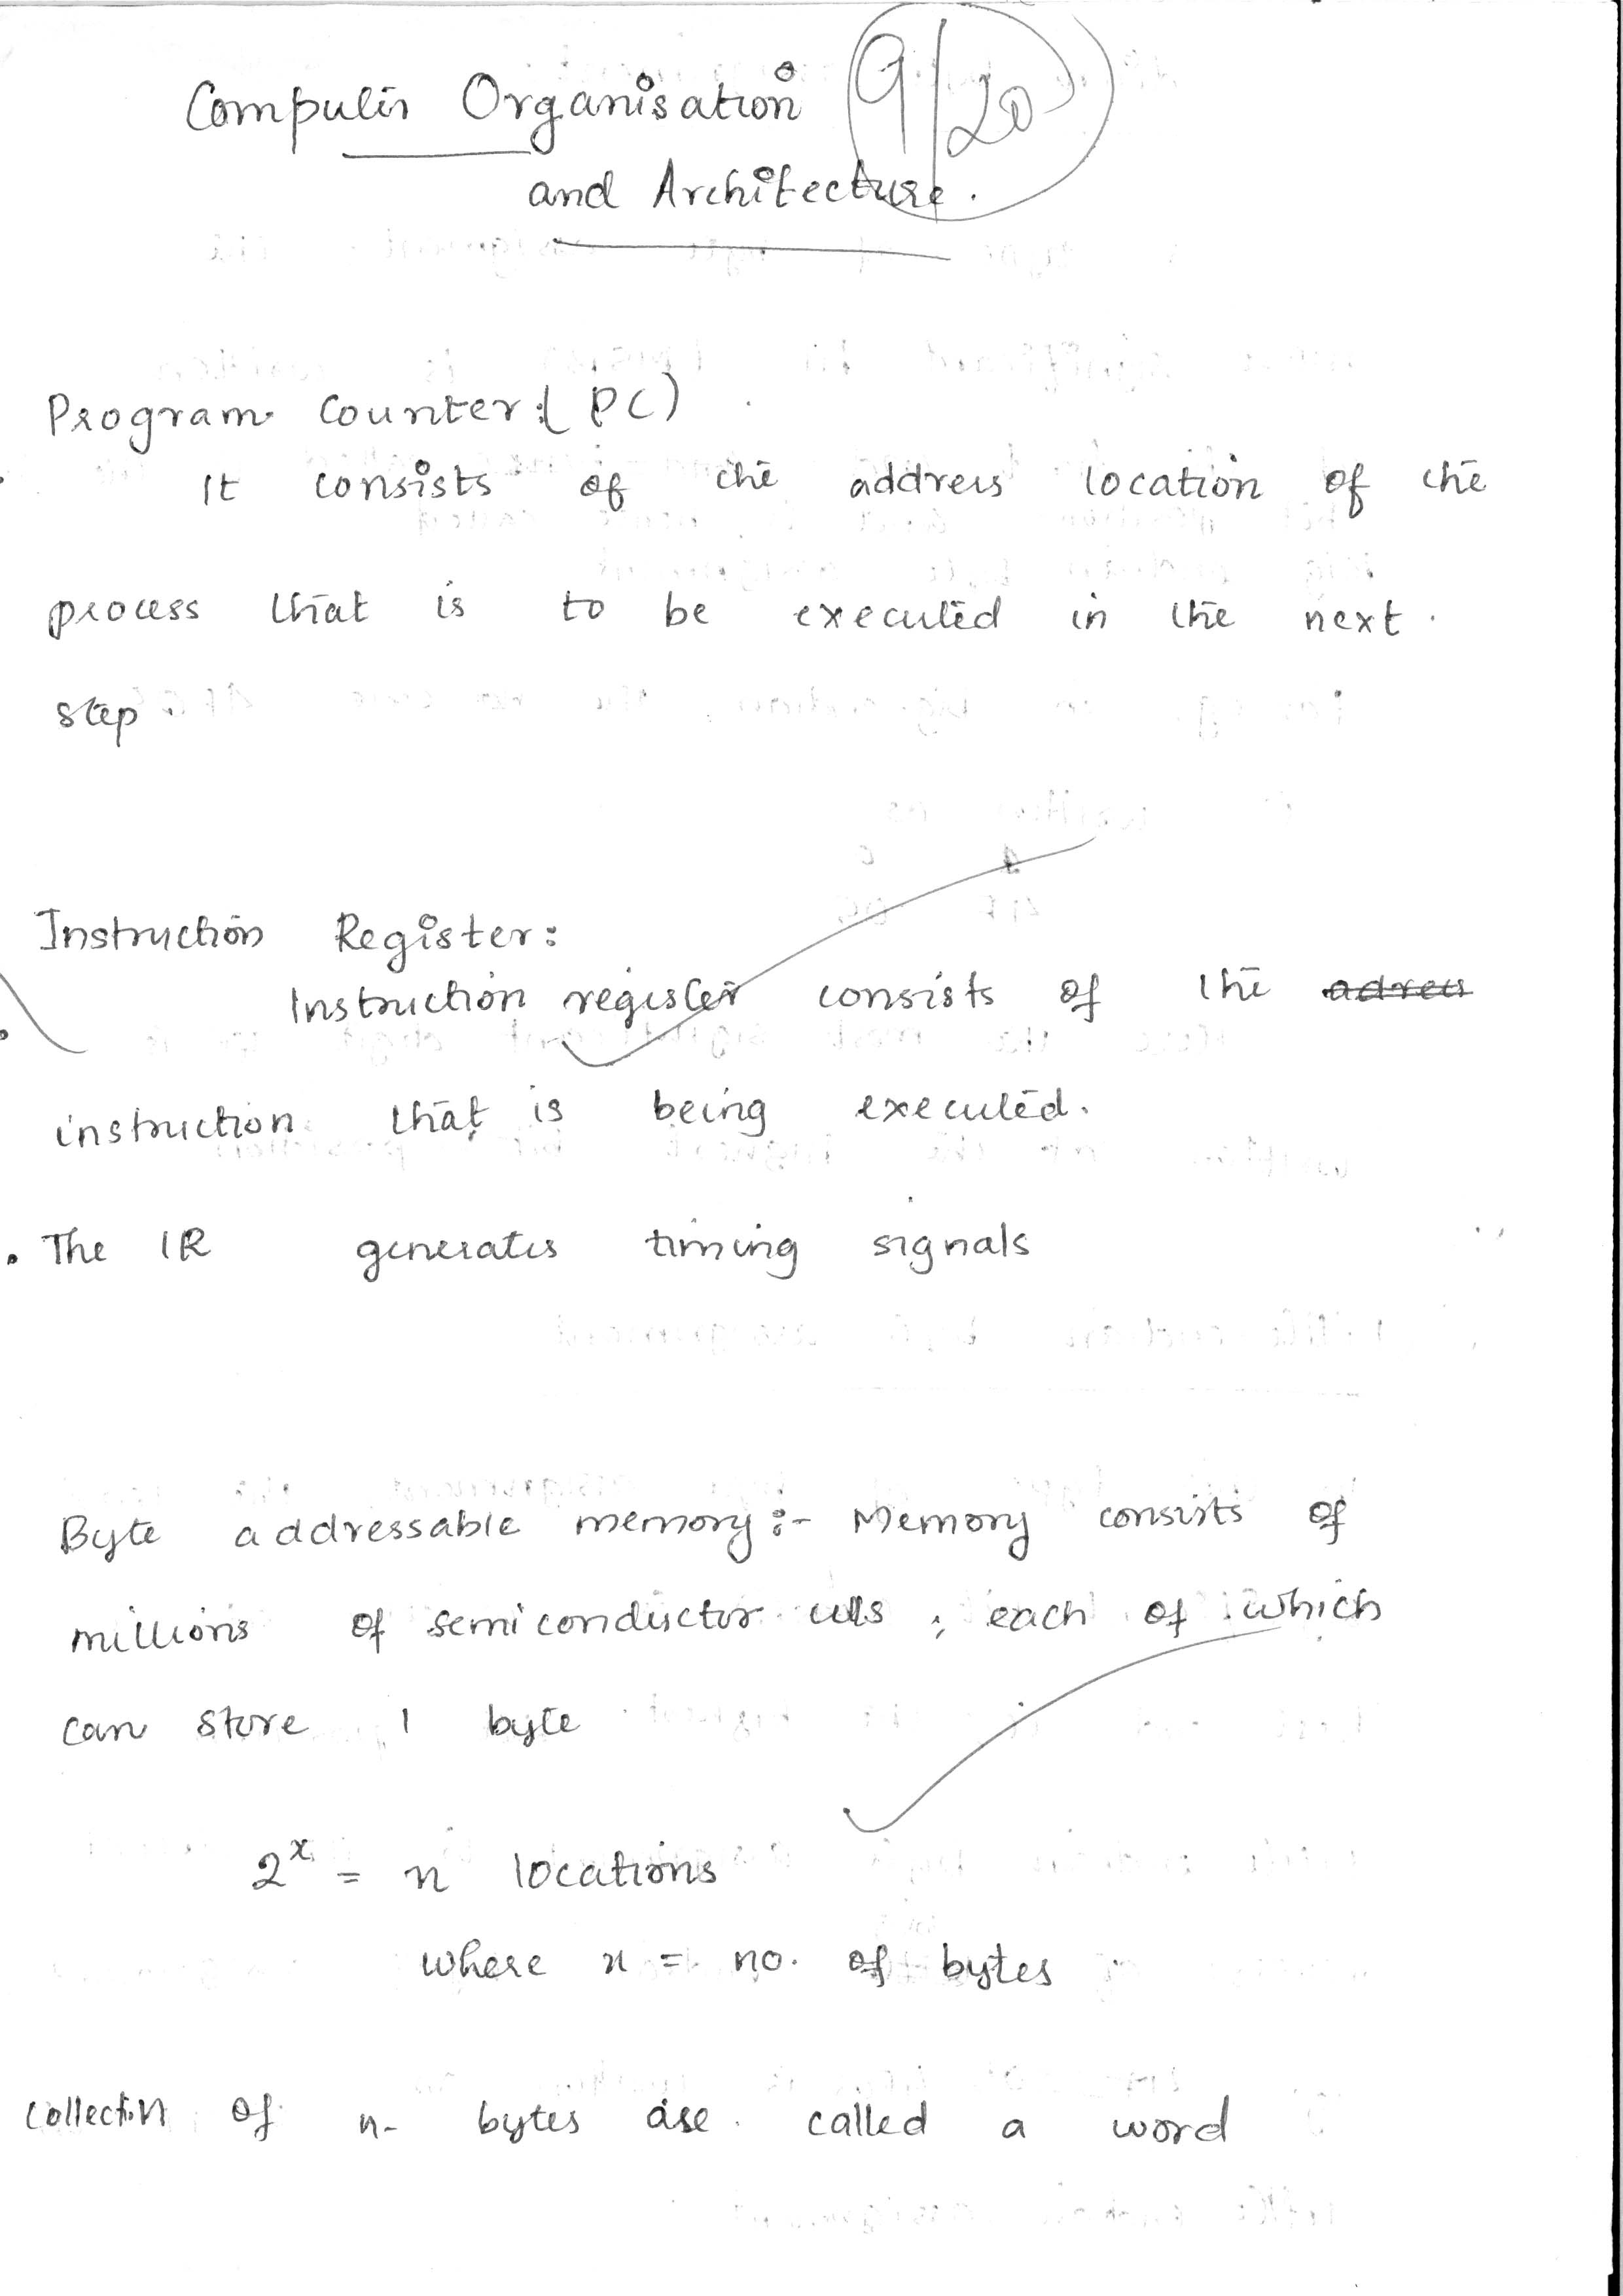 Computer Organisation
9/20
and Architecture.
Program Counter:( PC)
It consists of the address location of the
process that is to be executed in the next.
step.
Instruction Register:
Instruction register consists of the adress
instruction that is being executed.
• The IR generates timing signals
Byte addressable memory:- Memory consists of
millions of semiconductor cells, each of which
can store 1 byte
2^x = n locations
where n = no. of bytes
collection of n- bytes are called a word